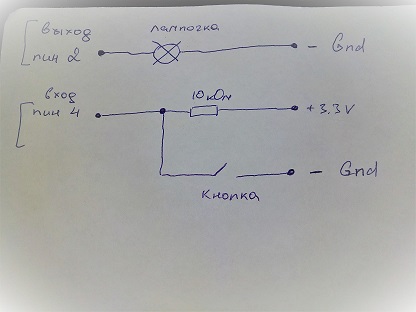 выход
лампочка
пин 2
- Gnd
вход
пин 4
10 кОм
+ 3.3 V
- Gnd
Кнопка